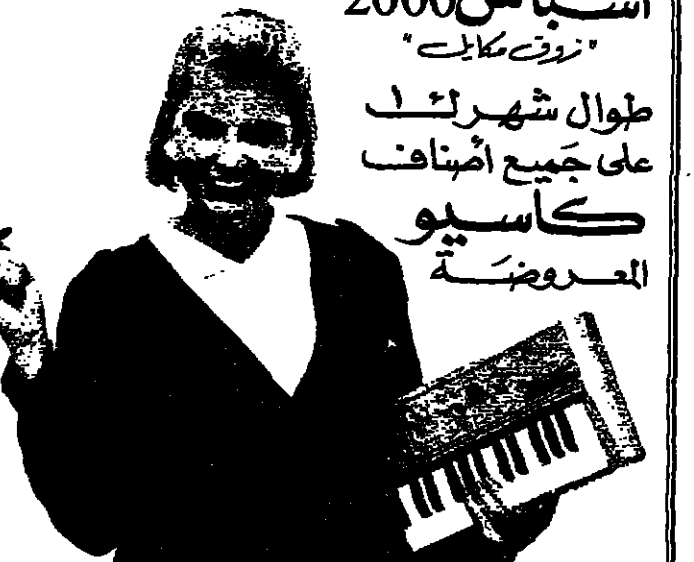 اسباس 2000
"زوق مكايل"
طوال شهر ك١
على جَميع أصناف
كاسيو
المعروضَة